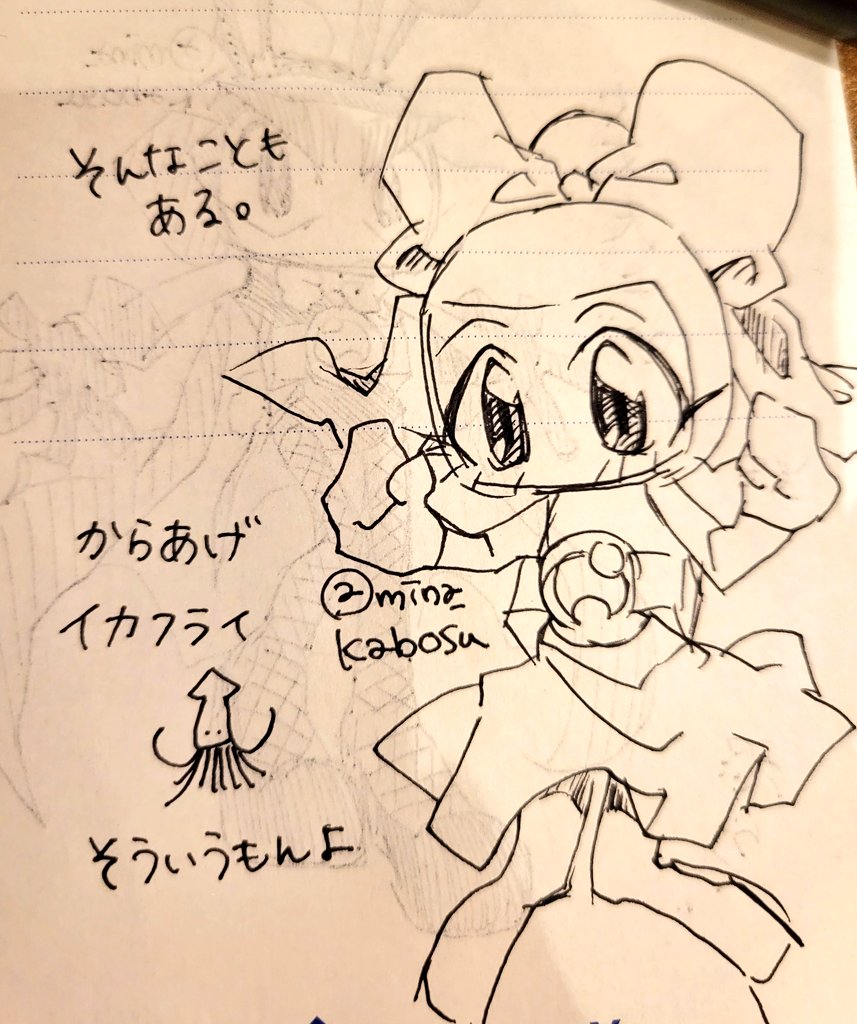 そんなことも
ある。
からあげ
イカフライ
@mina_
kabosu
そういうもんよ